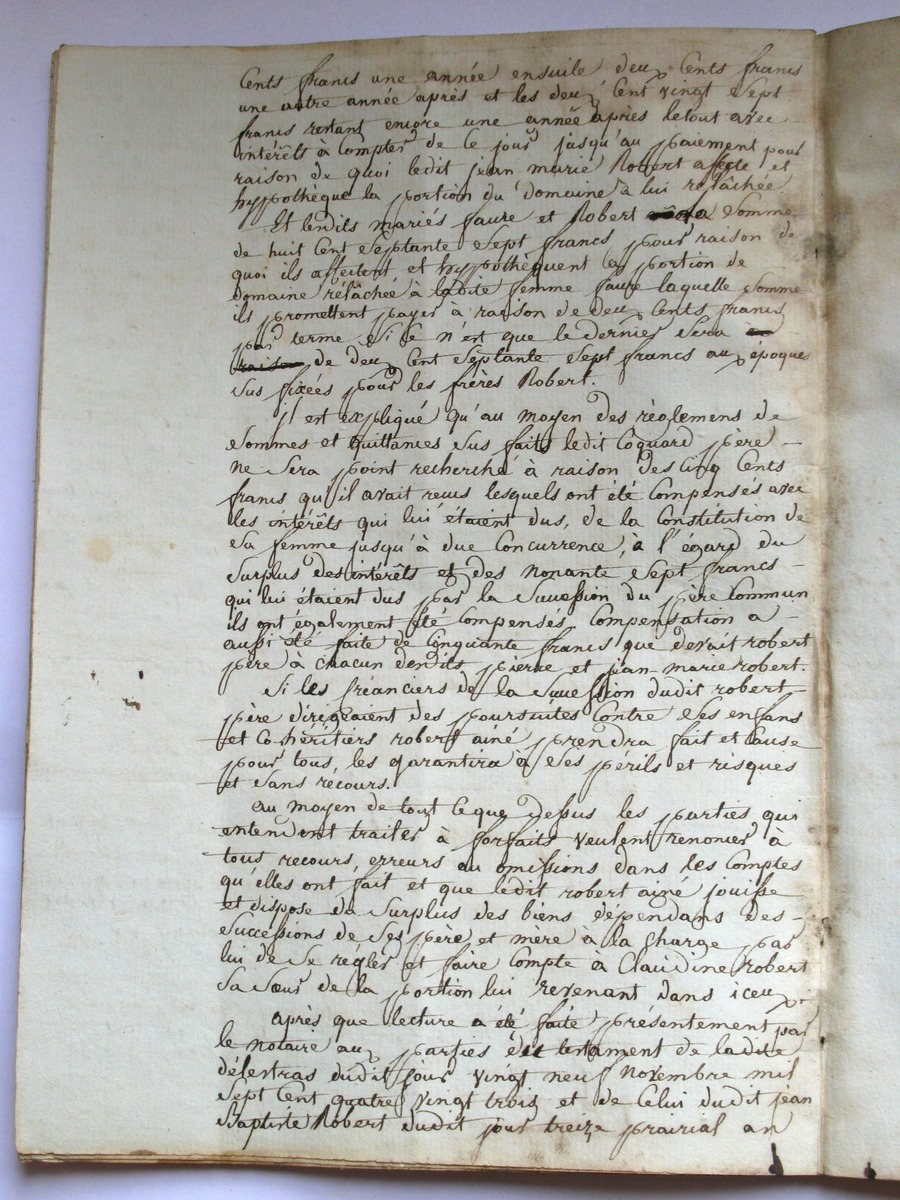 Cents francs une année ensuite deux Cents francs
une autre année après et les deux Cent vingt Sept
francs restans encore une année après le tout avec
intérêts à Compter de Ce jour jusqu'au paiement pour
raison de quoi ledit jean marie Robert affecte et
hyppothèque la portion du domaine à lui relâchée
Et lesdits mariés faure et Robert la Somme
de huit Cent Septante Sept francs pour raison de
quoi ils affectent et hyppothèquent la portion de
domaine relâchée à ladite femme faure laquelle Somme
ils promettent payer à raison de deux Cents francs
par terme Si Ce n'est que le dernier Sera
de deux Cent Septante Sept francs aux époques
Sus fixées pour les frères Robert.
Il est expliqué qu'au moyen des règlemens de
Sommes et quittances Sus faits ledit Coquard père
ne Sera point recherché à raison des Cinq Cents
francs qu'il avait recus lesquels ont été Compensés avec
les intérêts qui lui étaient dus, de la Constitution de
Sa femme jusqu'à due Concurrence, à l'égard du
Surplus des intérêts et des nonante Sept francs
qui lui étaient dus par la Succession du père Commun
ils ont également été Compensés Compensation a
aussi été faite de Cinquante francs que devait robert
père à chacun desdits pierre et jean-marie robert.
Si les Créanciers de la Succession dudit robert
père dirigeaient des poursuites Contre Ses enfans
et Co-héritiers robert ainé prendra fait et Cause
pour tous, les garantira à Ses périls et risques
et Sans recours.
au moyen de tout Ceque dessus les parties qui
entendent traiter à forfaits veulent renoncer à
tous recours, erreurs ou omissions dans les Comptes
qu'elles ont fait et que ledit robert ainé jouisse
et dispose du Surplus des biens dépendans des
Successions de Ses père et mère à la Charge par
lui de Se régler et faire Compte à Claudine robert
Sa Sœur de la portion lui revenant dans iceux.
après que lecture a été faite présentement par
le notaire aux parties du testament de ladite
délestras dudit jour vingt neuf Novembre mil
Sept Cent quatre vingt trois et de Celui dudit jean
Baptiste Robert dudit jour treize prairial an